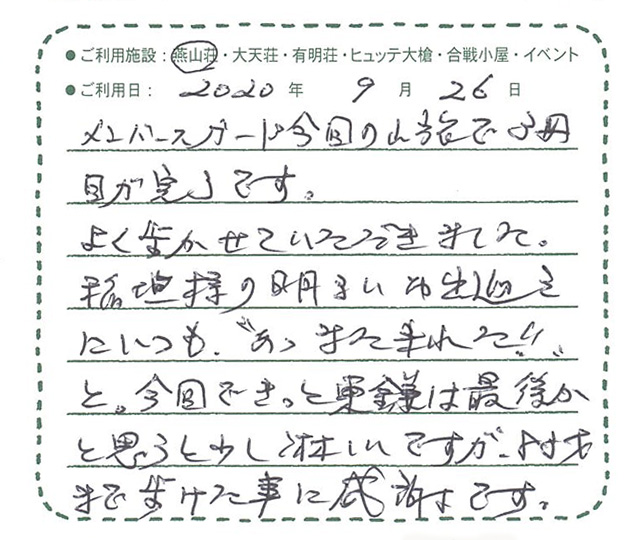 ●ご利用施設：燕山荘・大天荘・有明荘・ヒュッテ大槍・合戦小屋・イベント
●ご利用日： 2020 年 9 月 26 日
メンバースカード今回の山旅で 冊
目が完了です。
よく歩かせていただきました。
稲垣様の明るいお出迎え
にいつも、〝あっまた来れた!!〟
と。今回できっと東鎌は最後か
と思うと少し淋しいですが、
まで歩けた事に感謝です。